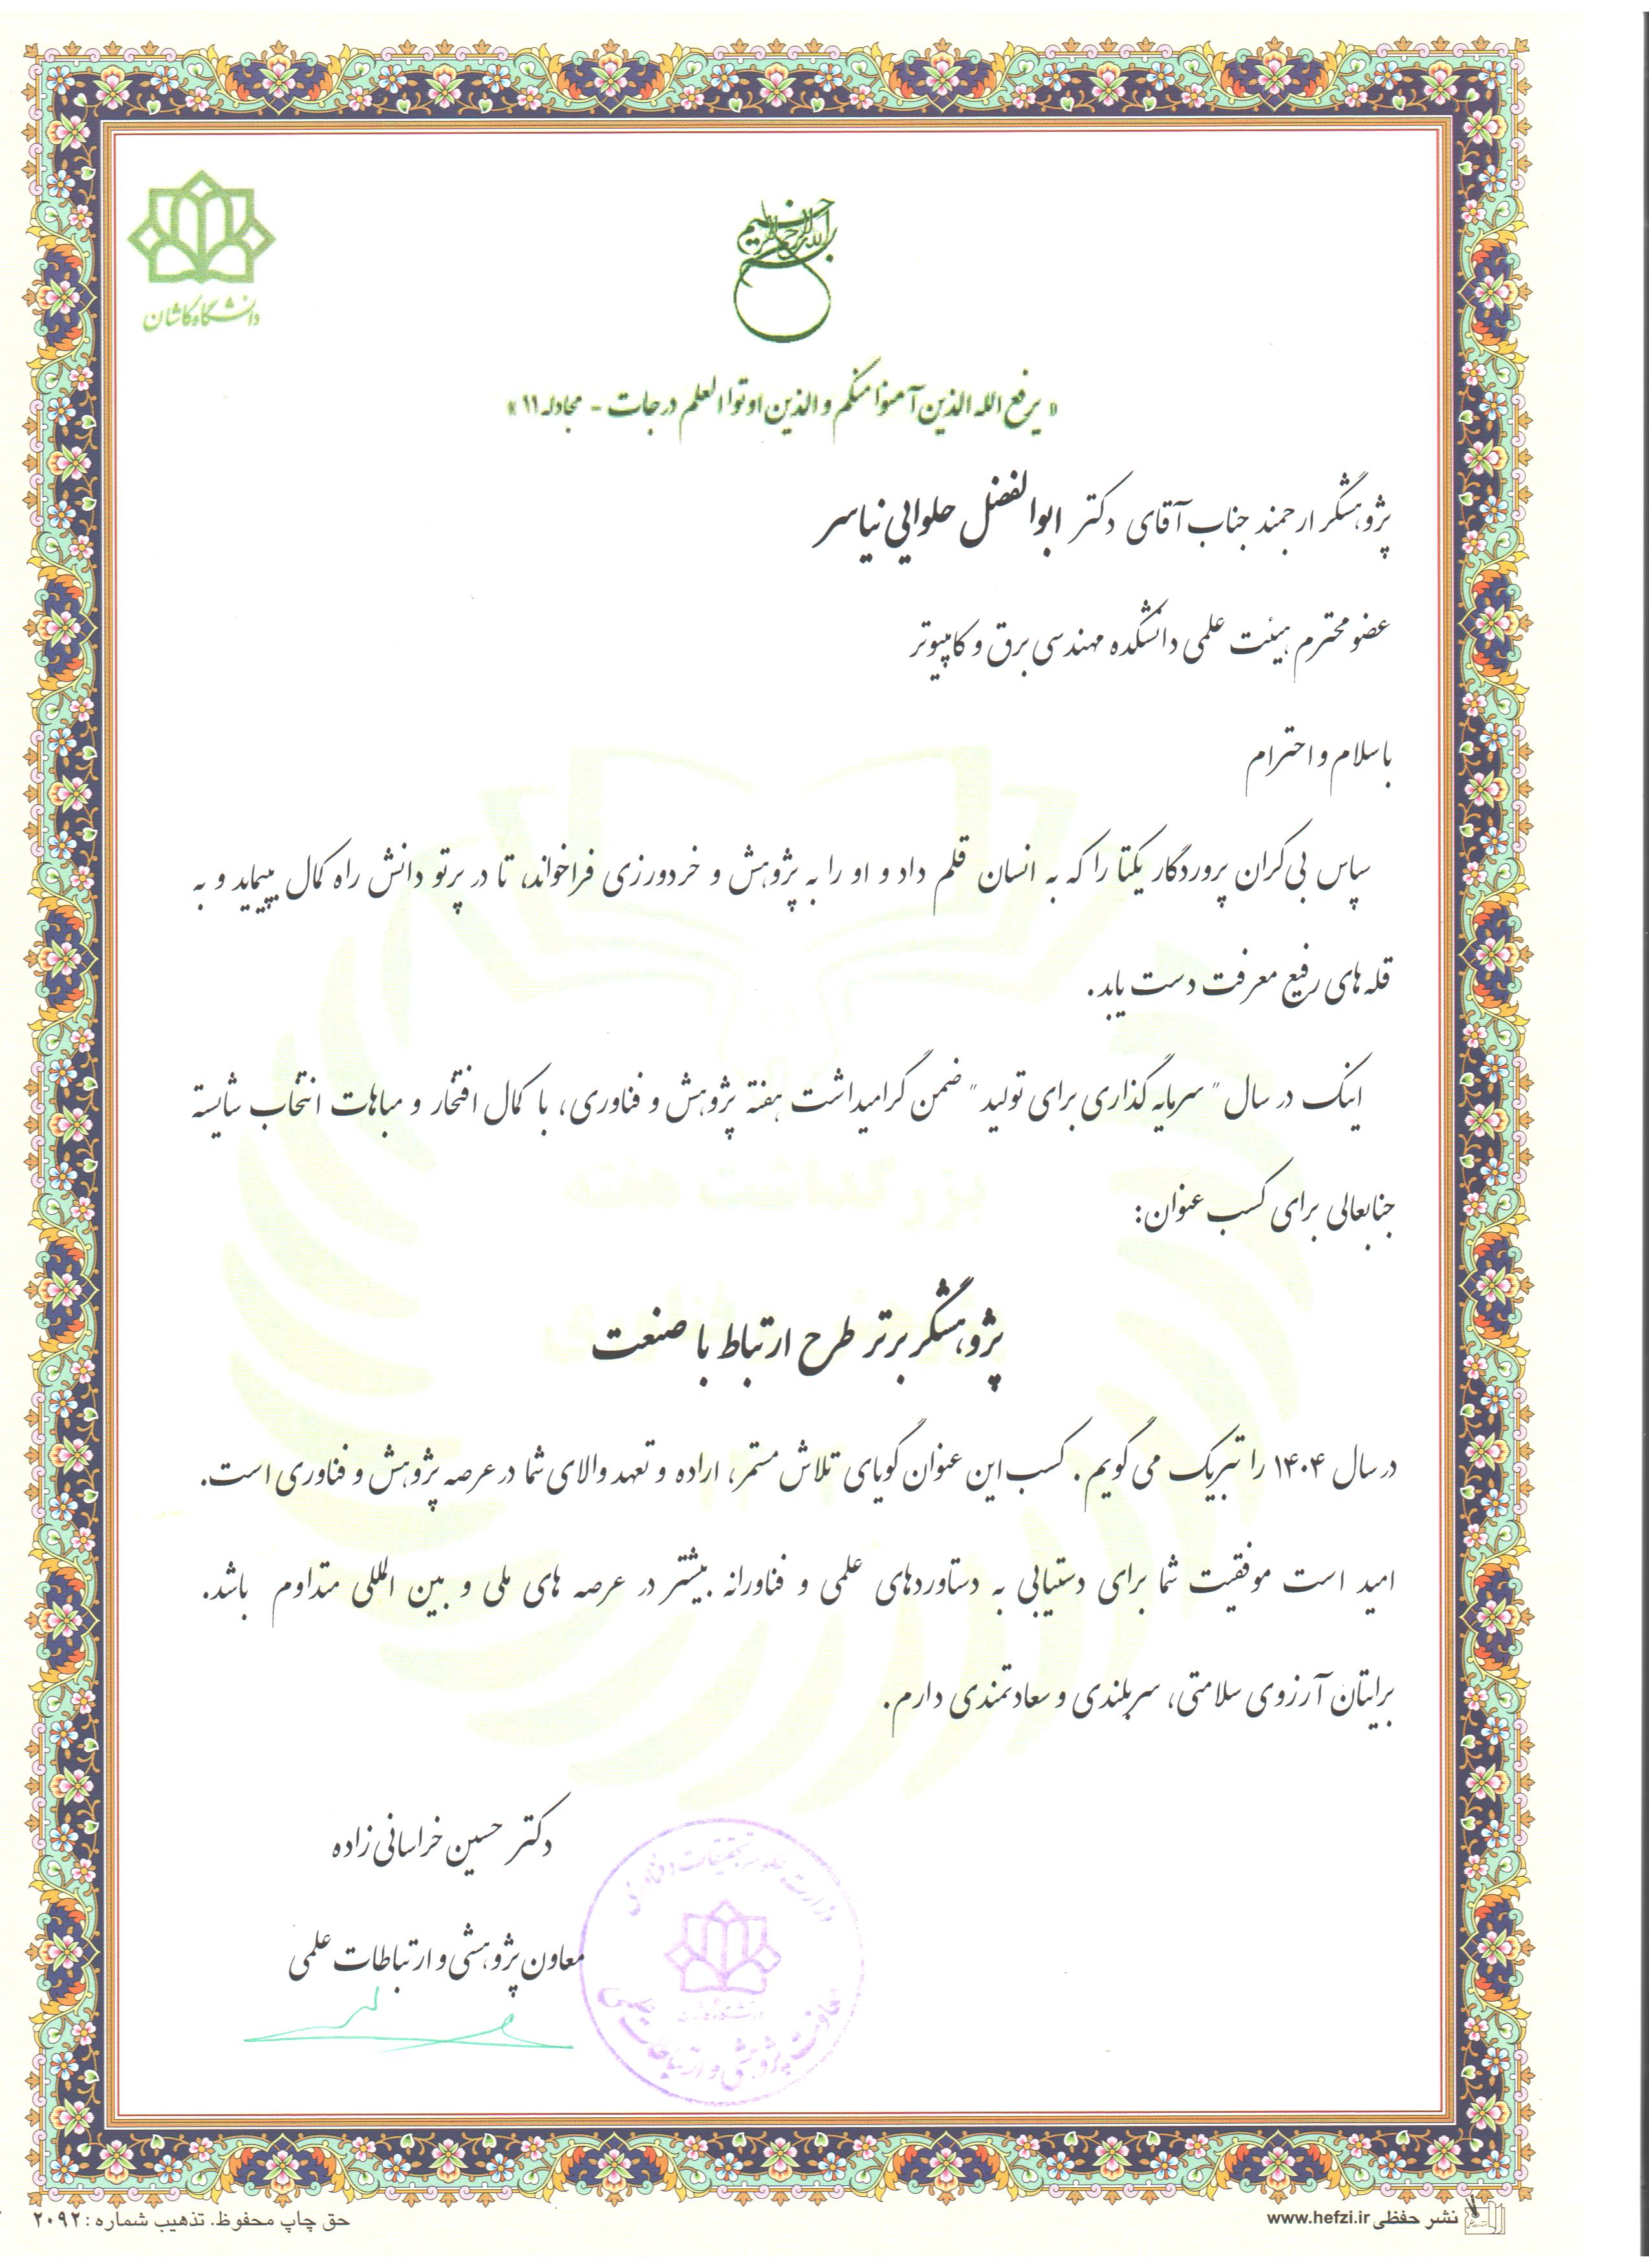 دانشگاه کاشان
بسم الله الرحمن الرحیم
« یرفع الله الذین آمنوا منکم و الذین اوتوا العلم درجات - مجادله ۱۱ »
پژوهشگر ارجمند جناب آقای دکتر ابوالفضل حلوایی نیاسر
عضو محترم هیئت علمی دانشکده مهندسی برق و کامپیوتر
با سلام و احترام
سپاس بی‌کران پروردگار یکتا را که به انسان قلم داد و او را به پژوهش و خردورزی فراخواند، تا در پرتو دانش راه کمال بپیماید و به
قله‌های رفیع معرفت دست یابد.
اینک در سال " سرمایه گذاری برای تولید " ضمن گرامیداشت هفته پژوهش و فناوری، با کمال افتخار و مباهات انتخاب شایسته
بزرگداشت هفته
جنابعالی برای کسب عنوان:
پژوهشگر برتر طرح ارتباط با صنعت
در سال ۱۴۰۴ را تبریک می گویم. کسب این عنوان گویای تلاش مستمر، اراده و تعهد والای شما در عرصه پژوهش و فناوری است.
امید است موفقیت شما برای دستیابی به دستاوردهای علمی و فناورانه بیشتر در عرصه های ملی و بین المللی متداوم باشد.
برایتان آرزوی سلامتی، سربلندی و سعادتمندی دارم.
دکتر حسین خراسانی زاده
معاون پژوهشی و ارتباطات علمی
وزارت علوم تحقیقات و فناوری
دانشگاه کاشان
معاونت پژوهشی و ارتباطات علمی
نشر حفظی www.hefzi.ir
حق چاپ محفوظ. تذهیب شماره : ۲۰۹۲